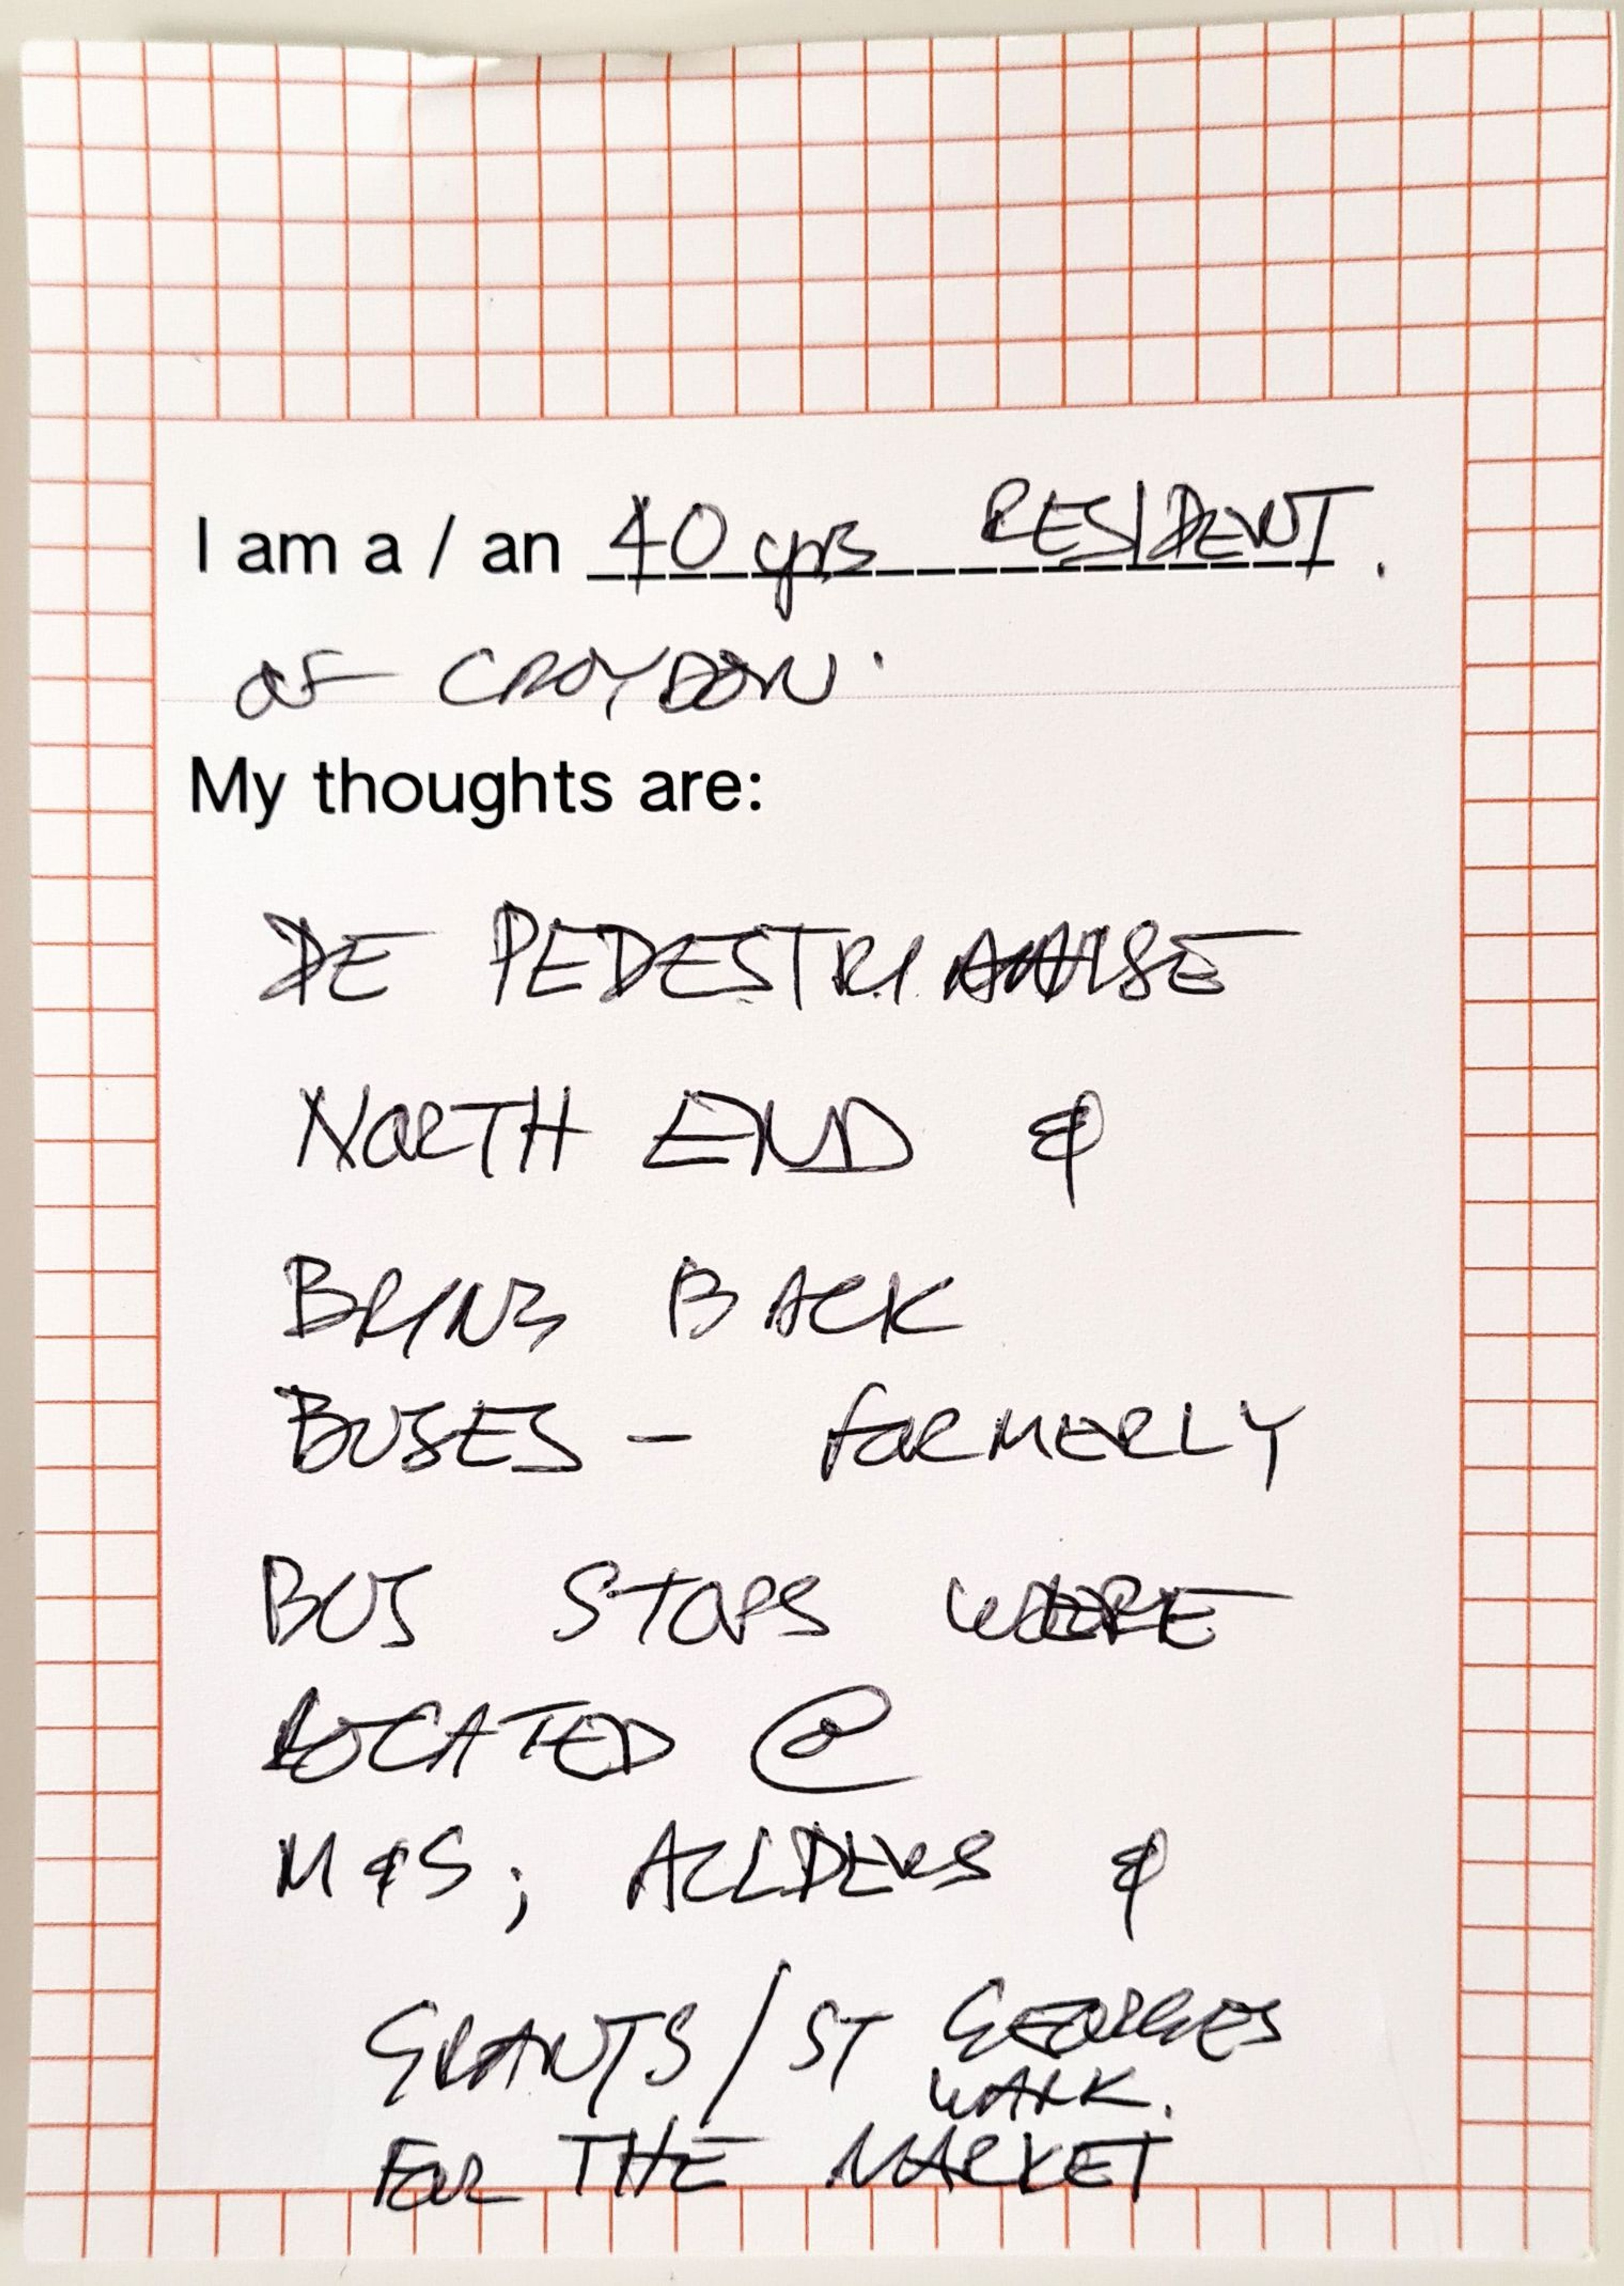 I am a / an 40 yrs RESIDENT.
OF CROYDON.
My thoughts are:
DE PEDESTRIANISE
NORTH END &
BRING BACK
BUSES – FORMERLY
BUS STOPS WERE
LOCATED @
M&S; ALLDERS &
GRANTS / ST GEORGES
WALK.
FOR THE MARKET